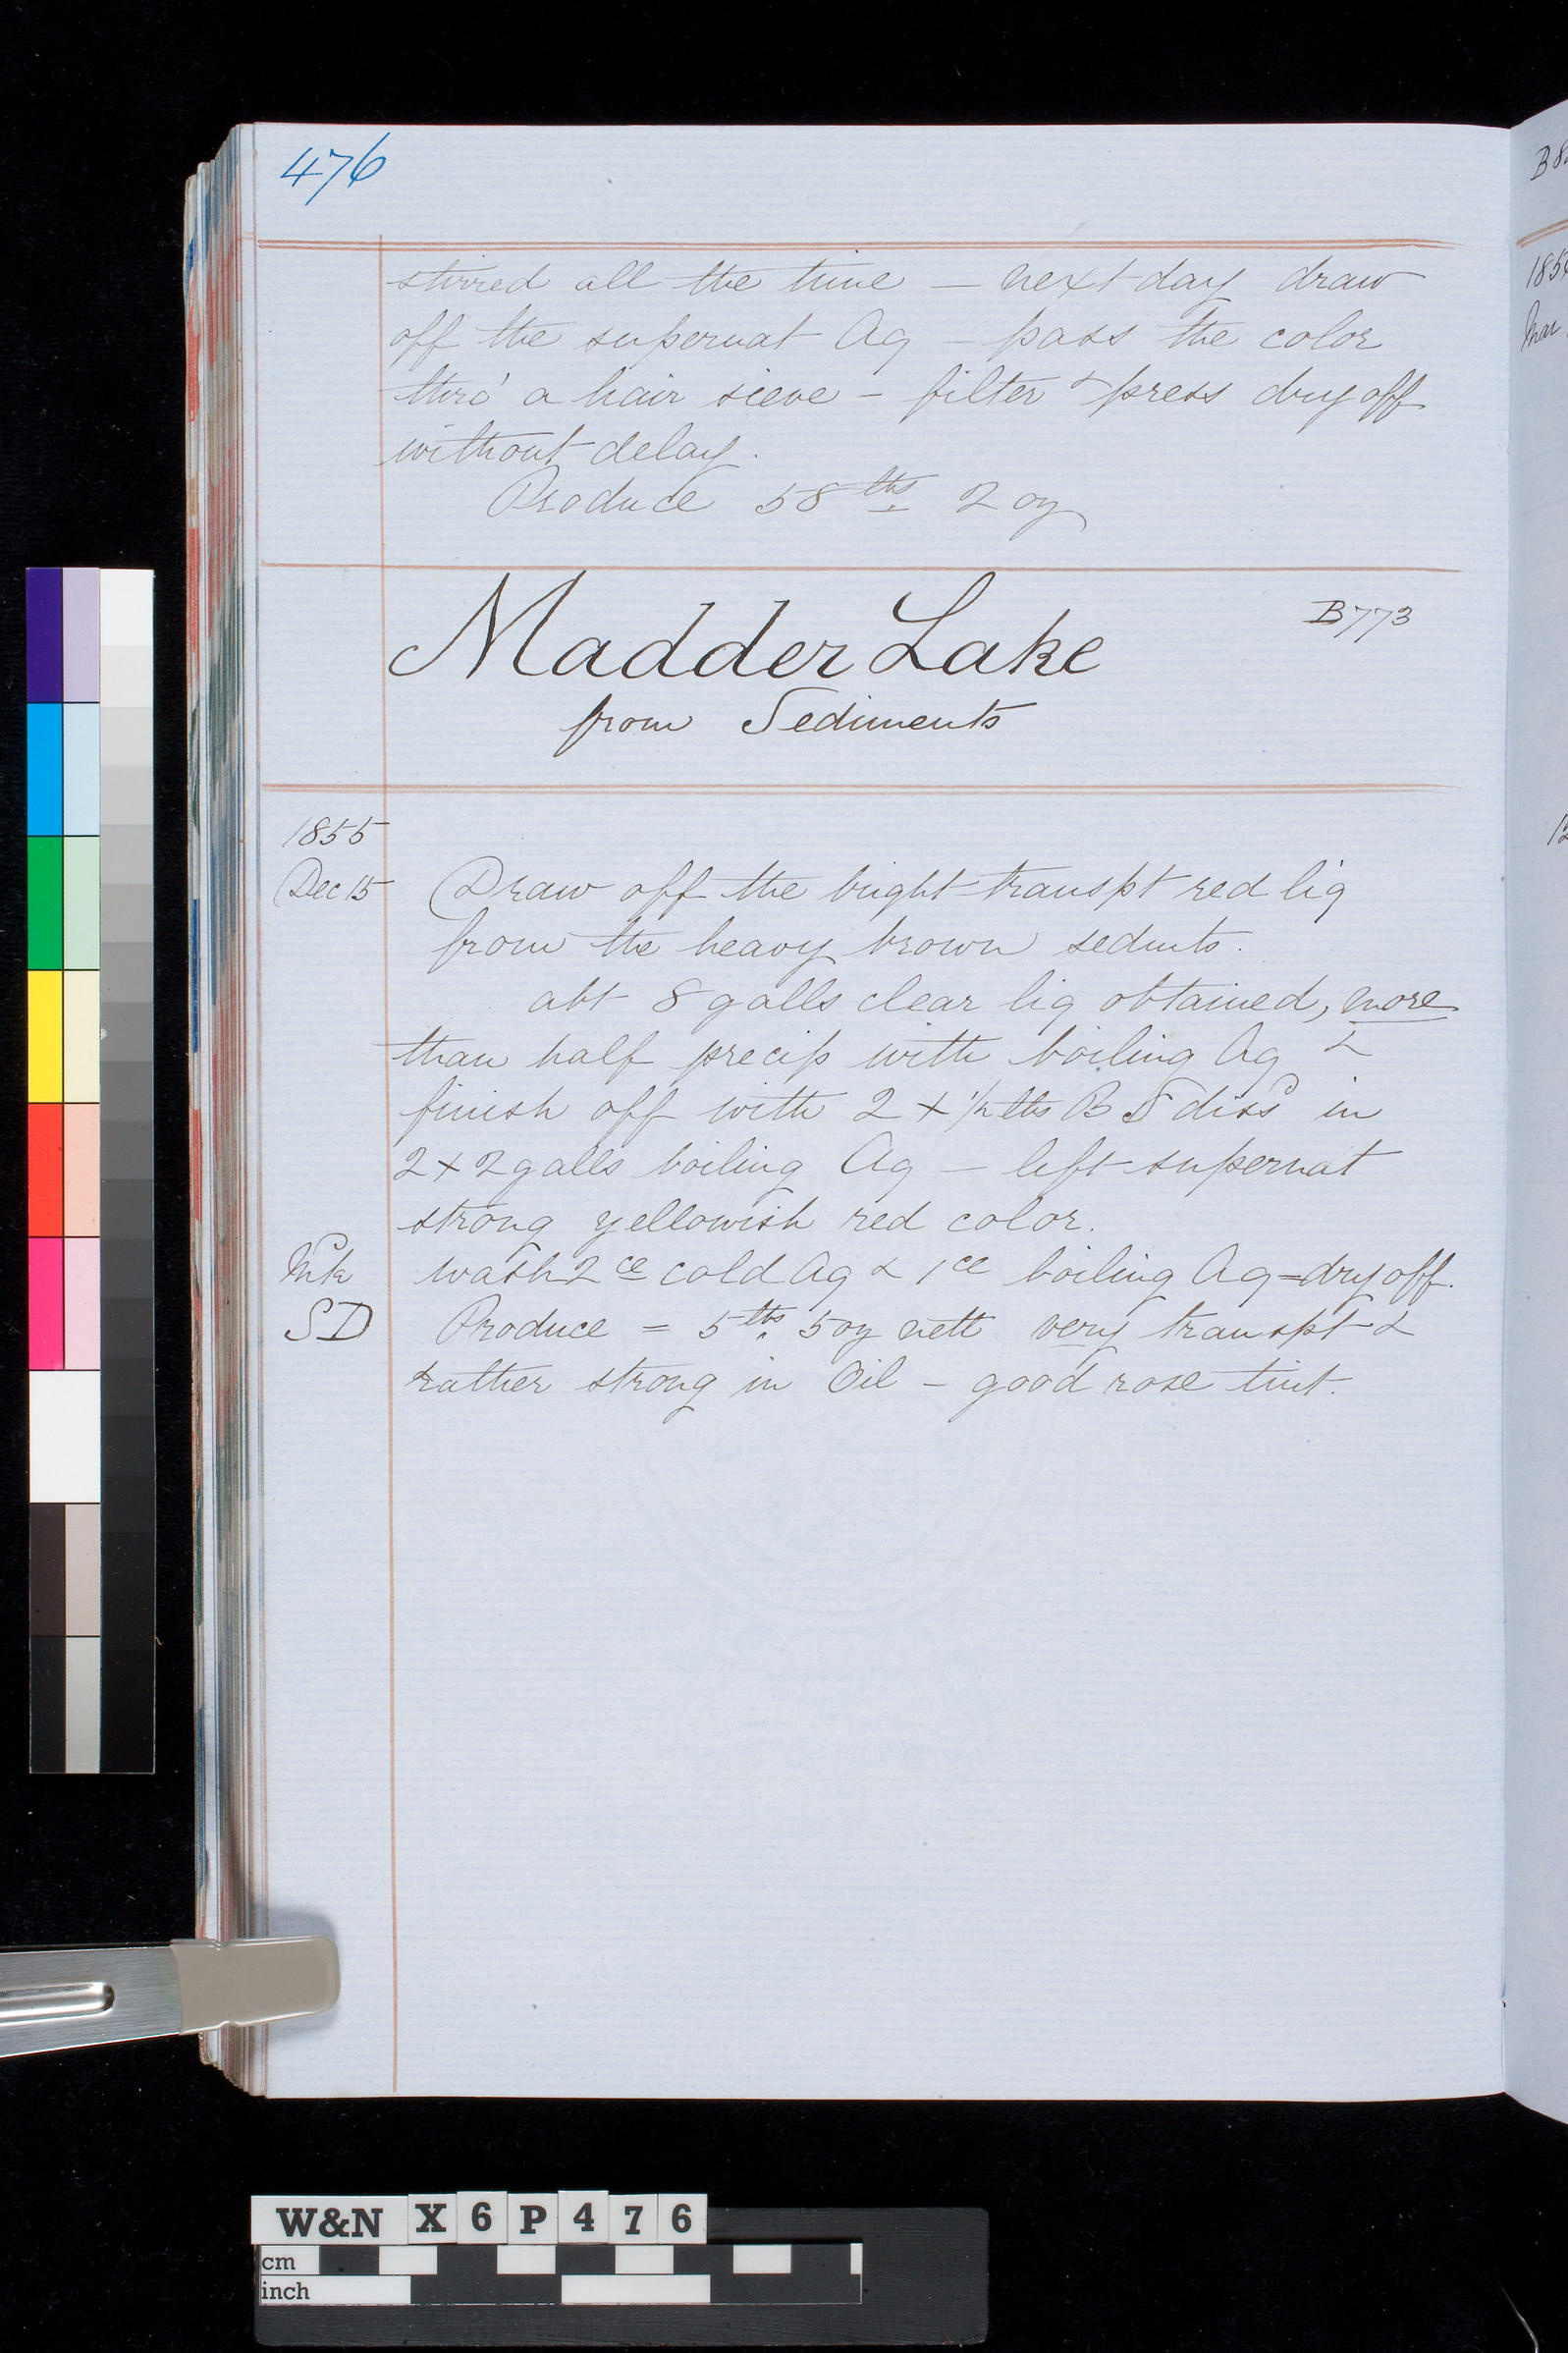 476
stirred all the time — next day draw
off the supernat Aq — pass the color
thro' a hair sieve — filter & press dry off
without delay.
Produce 58 lbs 2 oz
Madder Lake B773
from Sediments
1855
Dec 15 Draw off the bright transpt red liq
from the heavy brown sedmts.
abt 8 galls clear liq obtained, more
than half precip with boiling Aq &
finish off with 2 + 1/2 lbs B S dissd in
2 + 2 galls boiling Aq — left supernat
strong yellowish red color.
wash 2ce cold Aq & 1ce boiling Aq = dry off.
SD Produce = 5 lbs. 5 oz nett very transpt &
rather strong in Oil — good rose tint.
B8
185
Mar
12
W&N X6P476
cm
inch